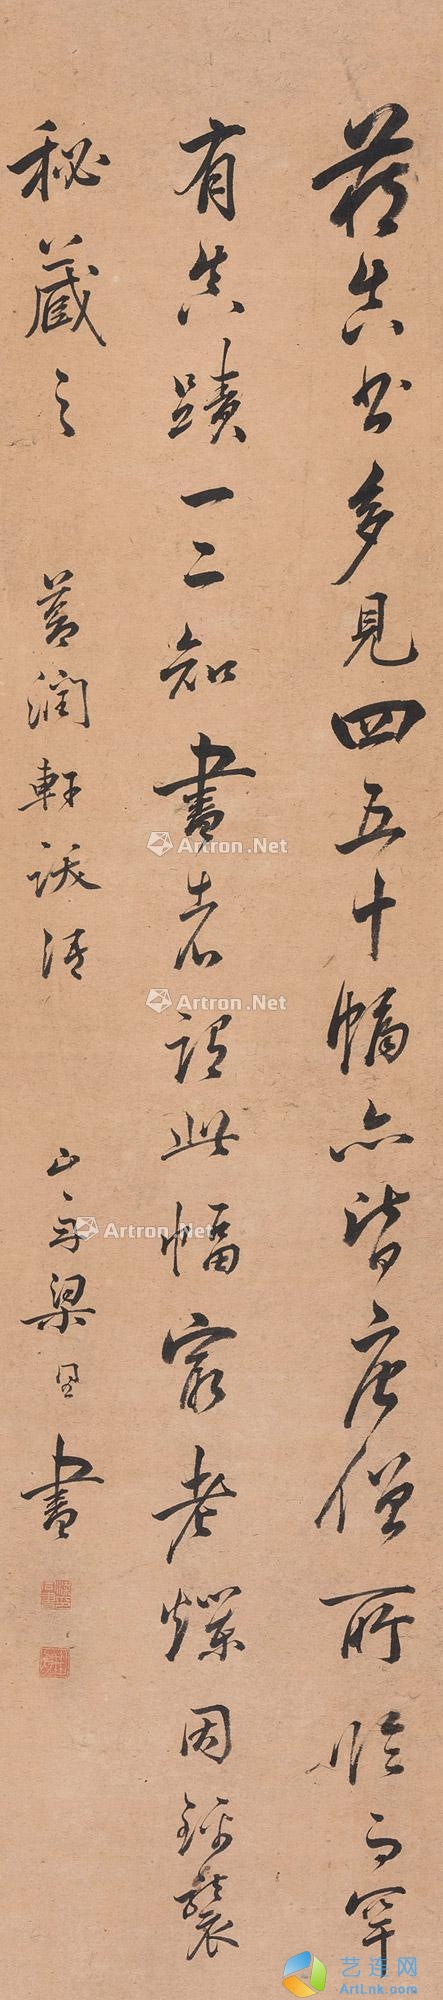 藏真书多见四五十幅亦皆唐僧所临而罕
有真蹟一二知書者谓此幅最老爍因鈢襲
秘藏之
潤軒
山舟梁同書
Artron.Net
Artron.Net
Artron.Net
艺连网
ArtLnk.com